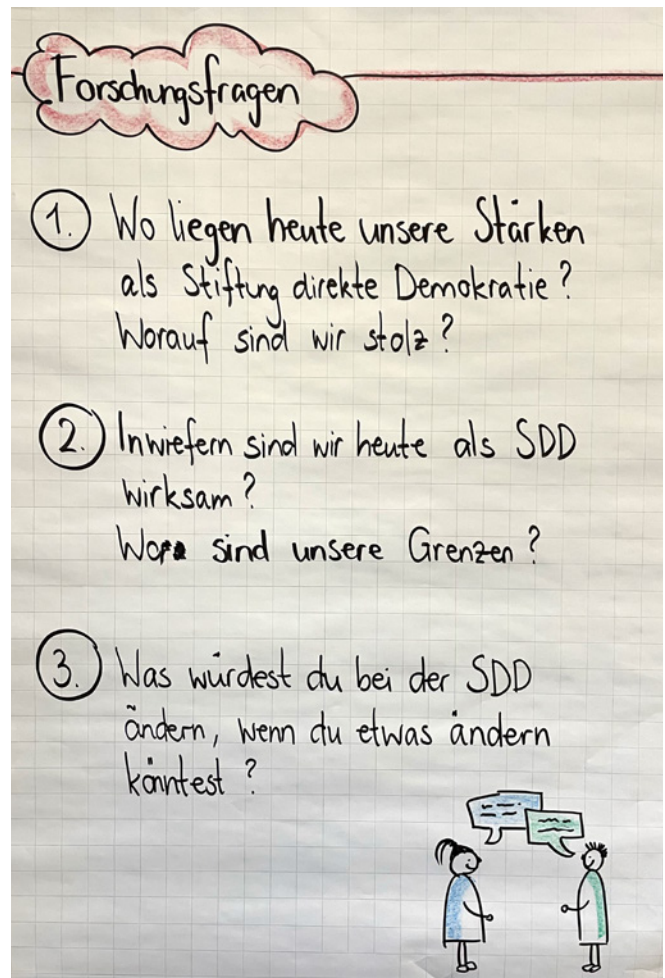 Forschungsfragen
1. Wo liegen heute unsere Stärken
als Stiftung direkte Demokratie?
Worauf sind wir stolz?
2. Inwiefern sind wir heute als SDD
wirksam?
Wo sind unsere Grenzen?
3. Was würdest du bei der SDD
ändern, wenn du etwas ändern
könntest?